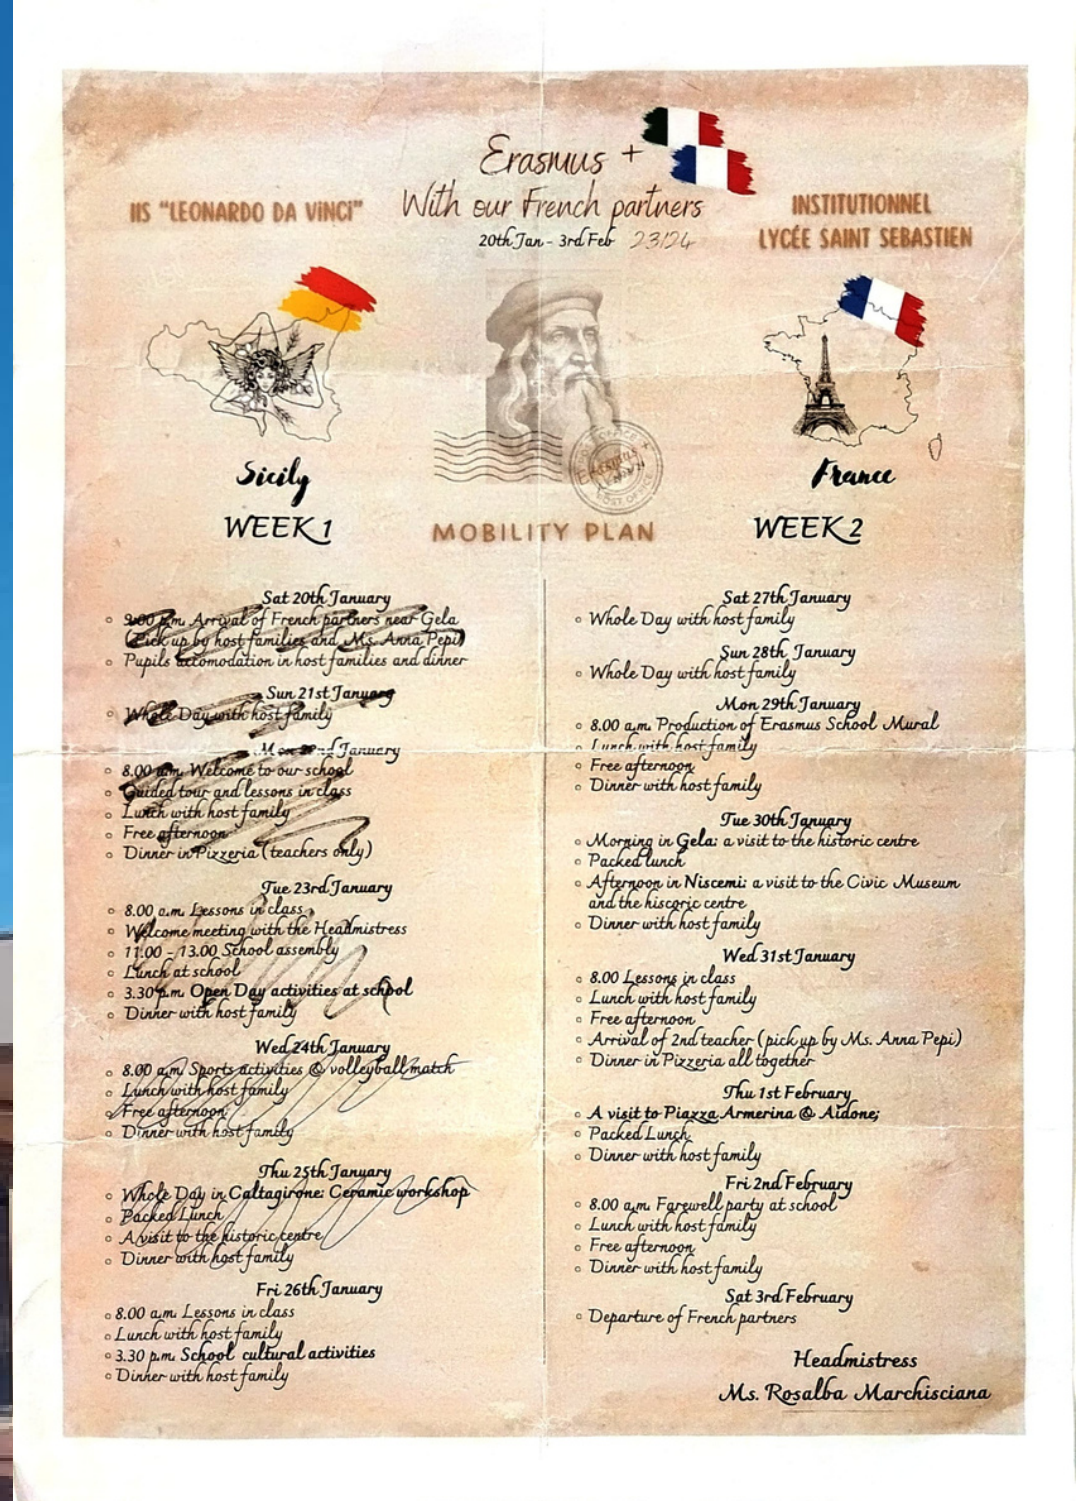 Erasmus +
With our French partners
20th Jan - 3rd Feb 23/24
IIS "LEONARDO DA VINCI"
INSTITUTIONNEL
LYCÉE SAINT SEBASTIEN
Sicily
France
WEEK 1
MOBILITY PLAN
WEEK 2
Sat 20th January
9:00 p.m. Arrival of French partners near Gela
(Pick up by host families and Ms. Anna Pepi)
Pupils accomodation in host families and dinner
Sun 21st January
Whole Day with host family
Mon 22nd January
8.00 a.m. Welcome to our school
Guided tour and lessons in class
Lunch with host family
Free afternoon
Dinner in Pizzeria (teachers only)
Tue 23rd January
8.00 a.m. Lessons in class
Welcome meeting with the Headmistress
11.00 - 13.00 School assembly
Lunch at school
3.30 p.m. Open Day activities at school
Dinner with host family
Wed 24th January
8.00 a.m. Sports activities @ volleyball match
Lunch with host family
Free afternoon
Dinner with host family
Thu 25th January
Whole Day in Caltagirone: Ceramic workshop
Packed Lunch
A visit to the historic centre
Dinner with host family
Fri 26th January
8.00 a.m. Lessons in class
Lunch with host family
3.30 p.m. School cultural activities
Dinner with host family
Sat 27th January
Whole Day with host family
Sun 28th January
Whole Day with host family
Mon 29th January
8.00 a.m. Production of Erasmus School Mural
Lunch with host family
Free afternoon
Dinner with host family
Tue 30th January
Morning in Gela: a visit to the historic centre
Packed lunch
Afternoon in Niscemi: a visit to the Civic Museum
and the hiscoric centre
Dinner with host family
Wed 31st January
8.00 Lessons in class
Lunch with host family
Free afternoon
Arrival of 2nd teacher (pick up by Ms. Anna Pepi)
Dinner in Pizzeria all together
Thu 1st February
A visit to Piazza Armerina @ Aidone;
Packed Lunch
Dinner with host family
Fri 2nd February
8.00 a.m. Farewell party at school
Lunch with host family
Free afternoon
Dinner with host family
Sat 3rd February
Departure of French partners
Headmistress
Ms. Rosalba Marchisciana